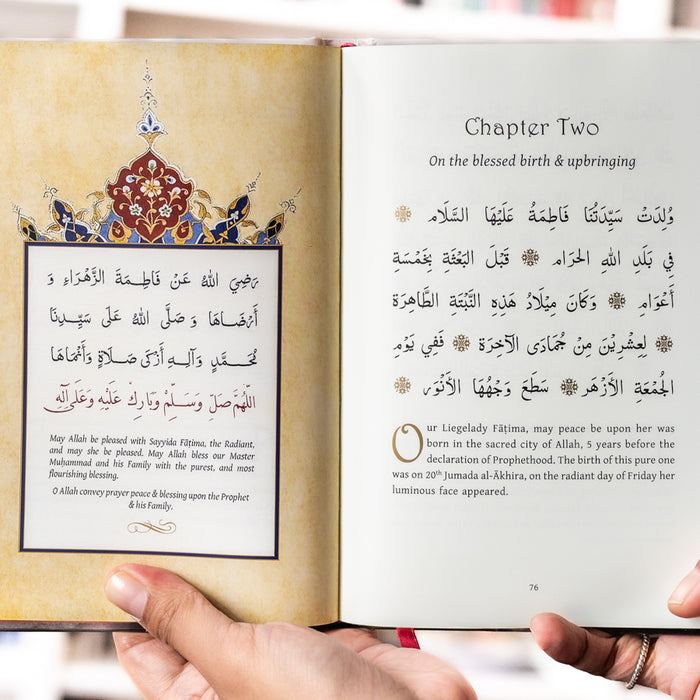 رَضِيَ اللهُ عَنْ فَاطِمَةَ الزَّهْرَاءِ وَ
أَرْضَاهَا وَ صَلَّى اللهُ عَلَى سَيِّدِنَا
مُحَمَّدٍ وَآلِهِ أَزْكَى صَلَاةٍ وَأَنْمَاهَا
اللَّهُمَّ صَلِّ وَسَلِّمْ وَبَارِكْ عَلَيْهِ وَعَلَى آلِهِ
May Allah be pleased with Sayyida Fāṭima, the Radiant,
and may she be pleased. May Allah bless our Master
Muḥammad and his Family with the purest, and most
flourishing blessing.
O Allah convey prayer peace & blessing upon the Prophet
& his Family.
Chapter Two
On the blessed birth & upbringing
وُلِدَتْ سَيِّدَتُنَا فَاطِمَةُ عَلَيْهَا السَّلَام
فِي بَلَدِ اللهِ الحَرَامِ قَبْلَ البَعْثَةِ بِخَمْسَةِ
أَعْوَامٍ وَكَانَ مِيْلَادُ هَذِهِ النَّبْتَةِ الطَّاهِرَة
لِعِشْرِيْنَ مِنْ جُمَادَى الآخِرَة فَفِي يَوْمِ
الجُمْعَةِ الأَزْهَر سَطَعَ وَجْهُهَا الأَنْوَر
Our Liegelady Fāṭima, may peace be upon her was
born in the sacred city of Allah, 5 years before the
declaration of Prophethood. The birth of this pure one
was on 20th Jumada al-Ākhira, on the radiant day of Friday her
luminous face appeared.
76